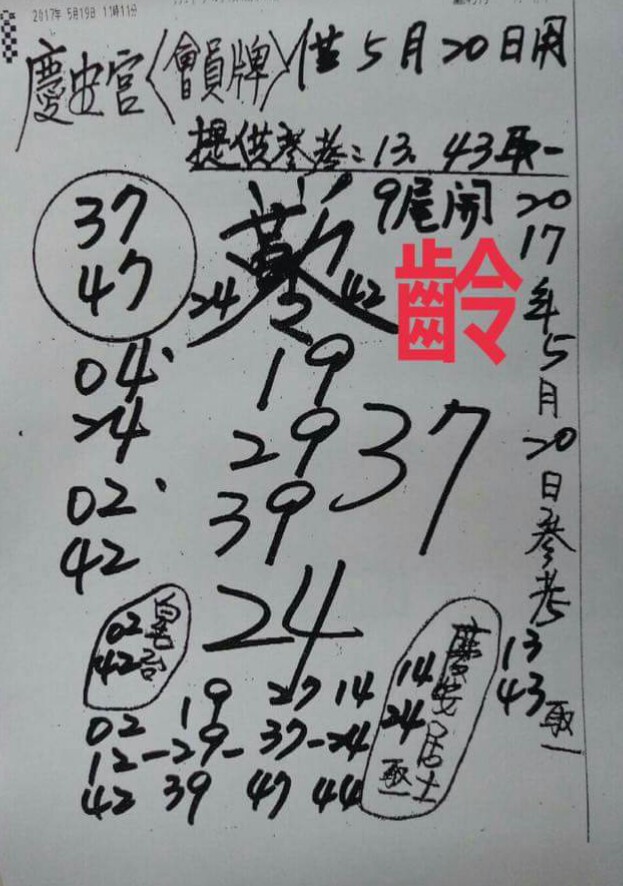 2017年 5月19日 11時11分
慶安宮〈會員牌〉供5月20日用
提供參考:13、43取一
37
47
9尾開
24 2 42
齡
04
24
02
42
19
29
39
37
24
2017年5月20日參考
13
43取一
02
42
慶安居士
14
24
取一
02 19 27 14
12-29-37-24
42 39 47 44